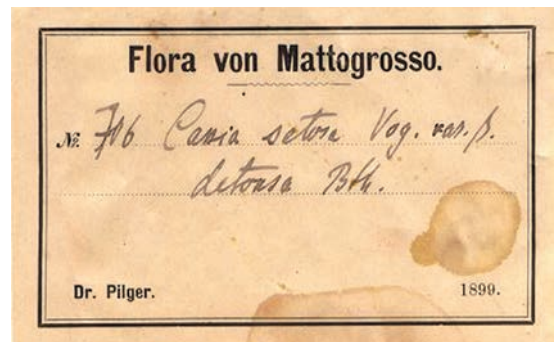 Flora von Mattogrosso.
№ 706 Cassia setosa Vog. var. β.
detonsa Bth.
Dr. Pilger. 1899.